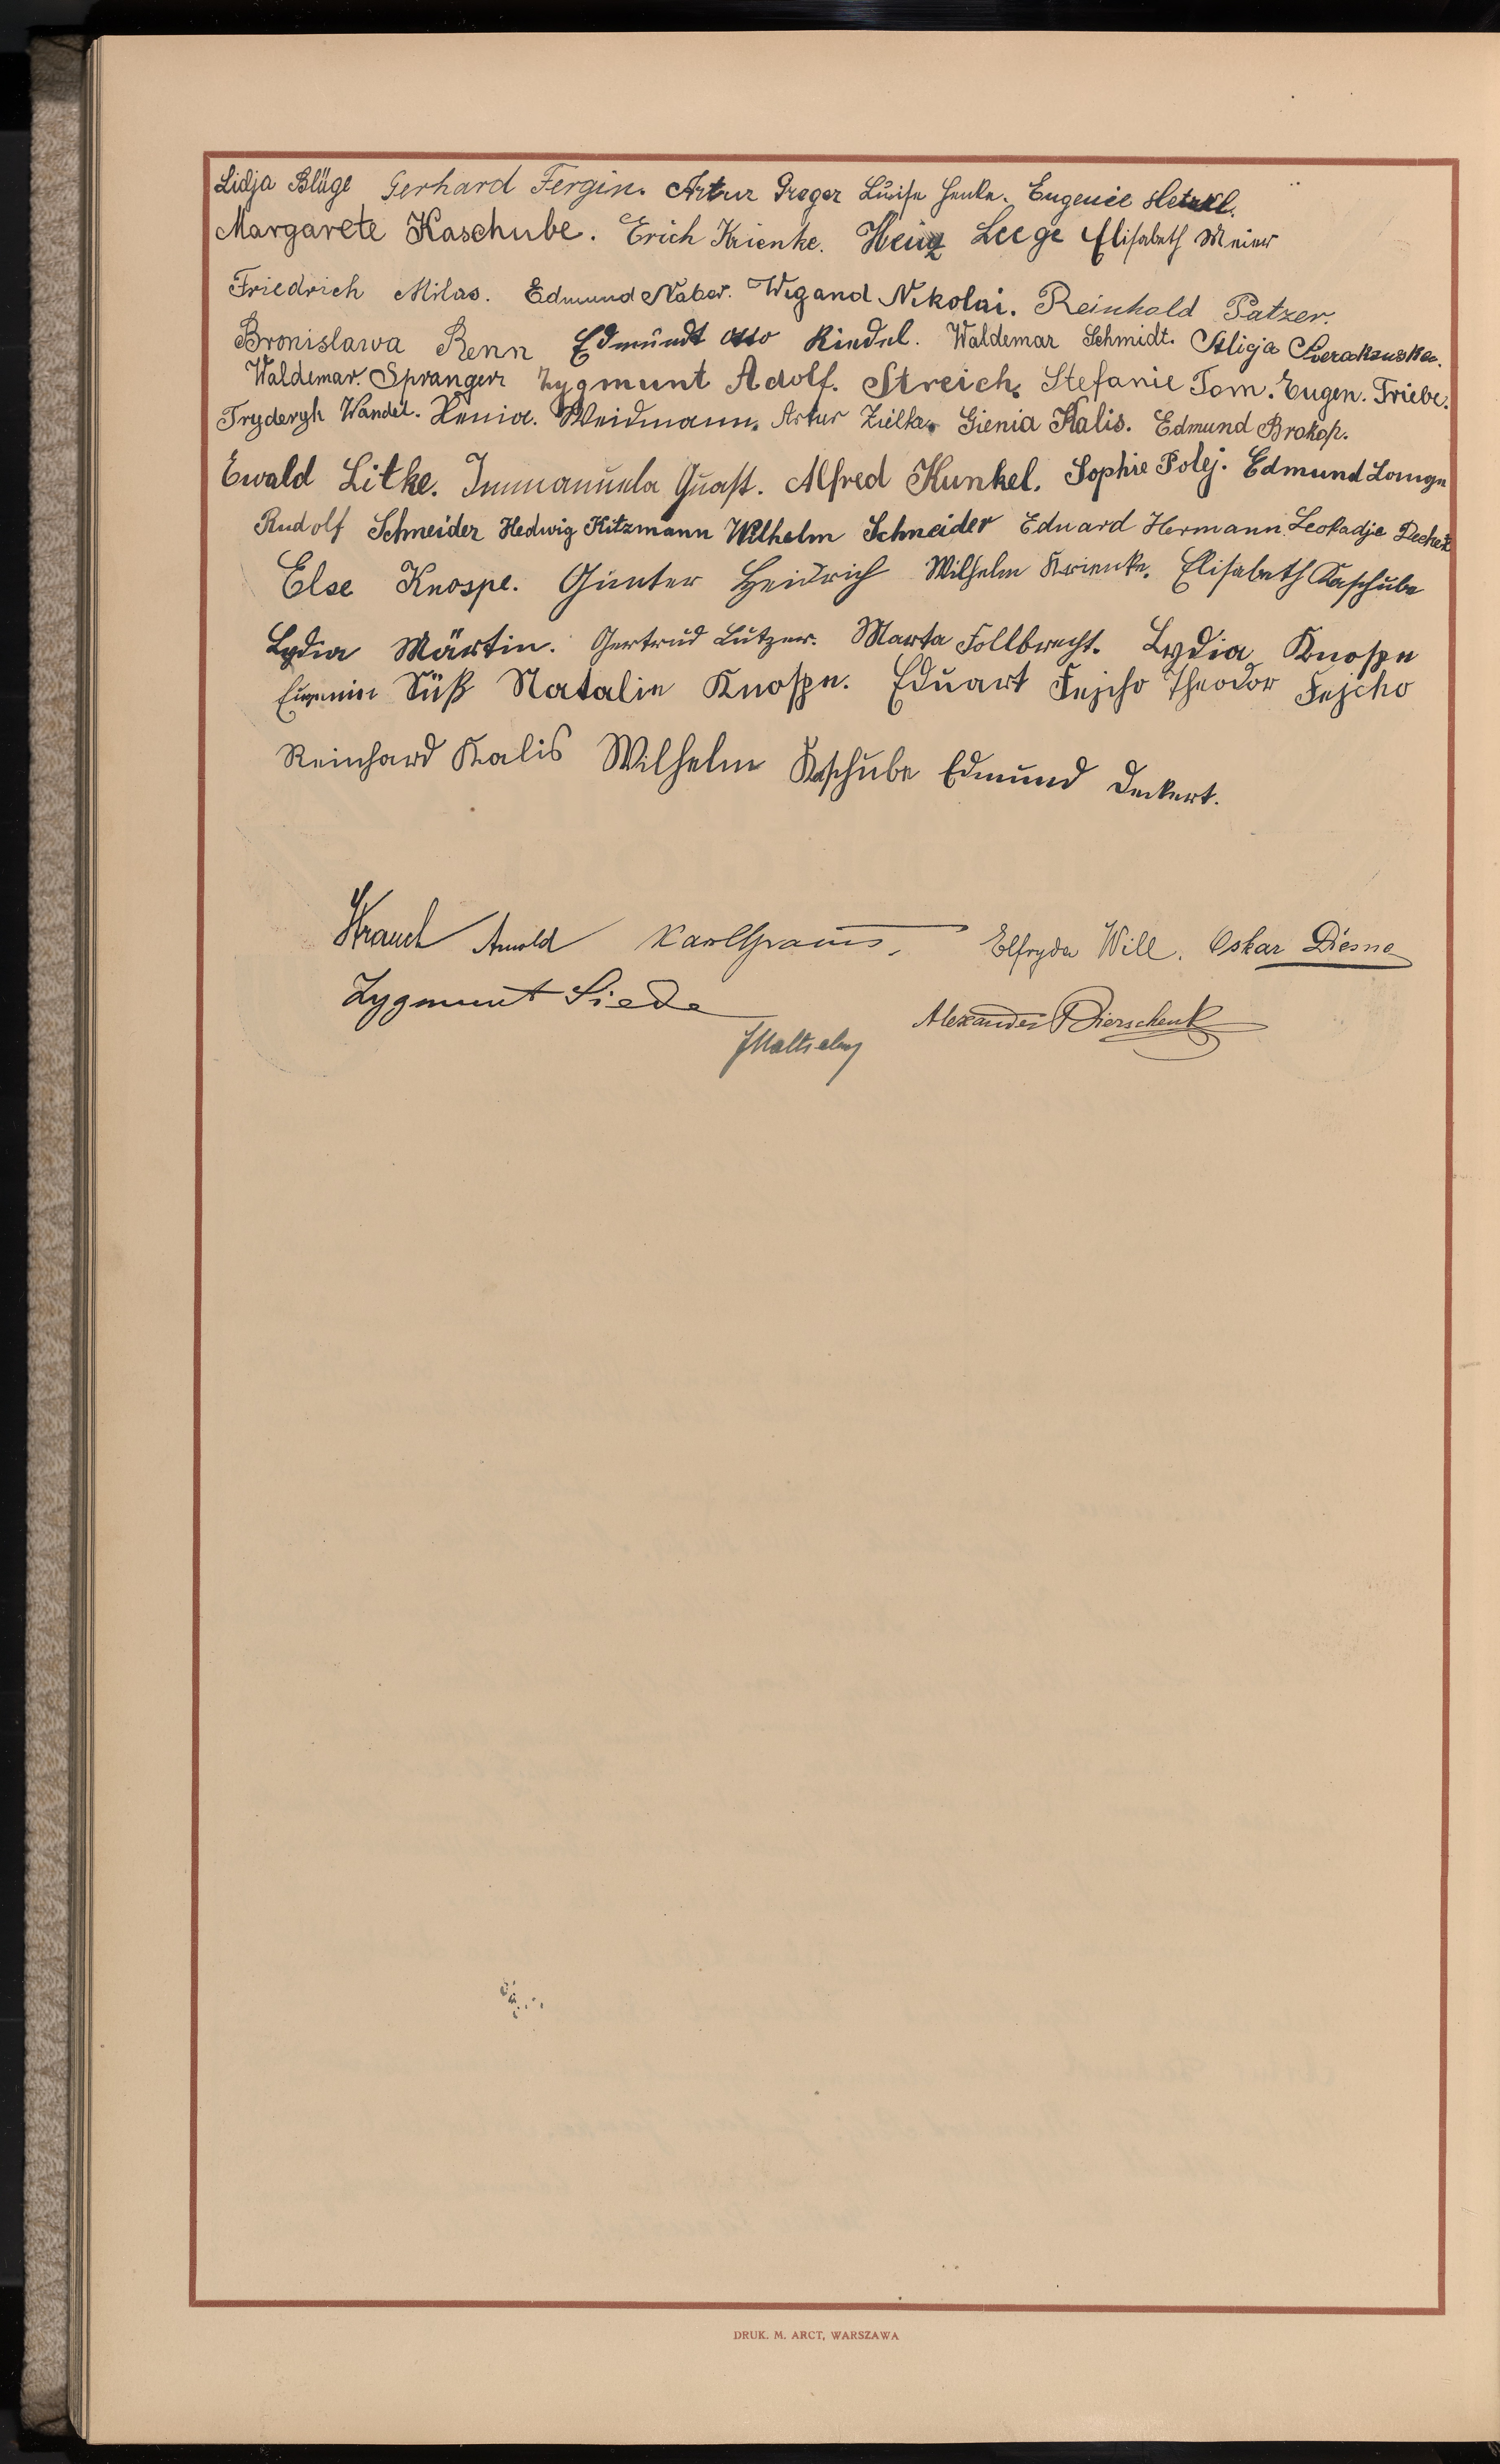 Lidja Blüge Gerhard Fergin. Artur Greger Luise Henke. Eugenie
Margarete Kaschube. Erich Krienke. Heinz Leege Elisabeth Meier
Friedrich Milas. Edmund Naber. Wigand Nikolai. Reinhold Patzer.
Bronislawa Renn Edmundt Otto Riedel. Waldemar Schmidt. Aligja
Waldemar. Spranger Zygmunt Adolf. Streich. Stefanie Tom. Eugen. Triebe.
Frydergh Wandel. Xenia. Weidmann. Artur Zielke. Gienia Kalis. Edmund Brokop.
Ewald Litke. Immanuela Quast. Alfred Kunkel. Sophie Polej. Edmund Lange
Rudolf Schneider Hedwig Kitzmann Wilhelm Schneider Eduard Hermann Leokadje
Else Knospe. Günter Heidrich Wilhelm Krienke. Elisabeth Kaschube
Lydia Märtin. Gertrud Lutzer. Marta Follbrecht. Lydia Knospe
Eugenie Süß Natalie Knospe. Eduart Fejcho Theodor Fejcho
Reinhard Kalis Wilhelm Kaschube Edmund Deckert.
Krauch Arnold Karl Elfryda Will. Oskar Diesne
Zygmunt Siede
Alexander Dierschenk
DRUK. M. ARCT, WARSZAWA